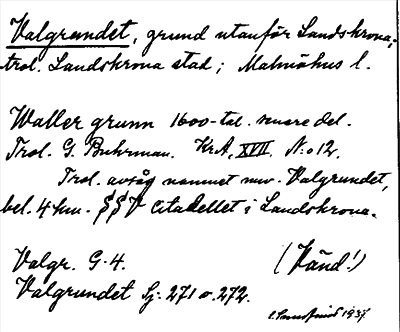 Valgrundet, grund utanför Landskrona;
trol. Landskrona stad; Malmöhus l.
Waller grunn 1600-tal. senare del.
Trol. G. Buhrman. KrA, XVII. N:o 12.
Trol. avsåg namnet nuv. Valgrundet,
bel. 4 km. SSV citadellet i Landskrona.
Valgr. G. 4. (Vänd!)
Valgrundet Sj. 271 o. 272.
1937